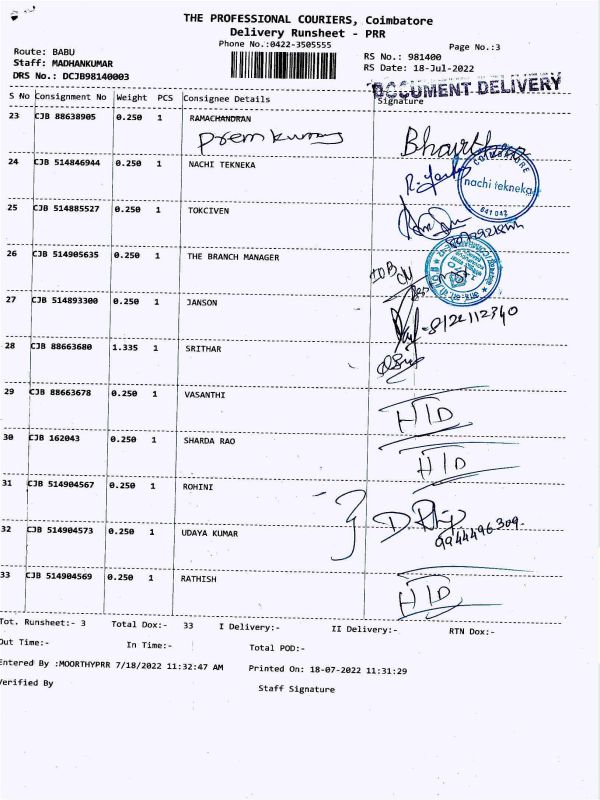 THE PROFESSIONAL COURIERS, Coimbatore
Delivery Runsheet - PRR
Phone No.:0422-3505555
Page No.:3
Route: BABU
RS No.: 981400
Staff: MADHANKUMAR
RS Date: 18-Jul-2022
DRS No.: DCJB98140003
DOCUMENT DELIVERY
S No Consignment No Weight PCS Consignee Details Signature
23 CJB 88638905 0.250 1 RAMACHANDRAN
Premkumar
24 CJB 514846944 0.250 1 NACHI TEKNEKA
COIMBATORE
nachi tekneka
641 042
25 CJB 514885527 0.250 1 TOKCIVEN
26 CJB 514905635 0.250 1 THE BRANCH MANAGER
27 CJB 514893300 0.250 1 JANSON
28 CJB 88663680 1.335 1 SRITHAR
29 CJB 88663678 0.250 1 VASANTHI
H/D
30 CJB 162043 0.250 1 SHARDA RAO
H/D
31 CJB 514904567 0.250 1 ROHINI
32 CJB 514904573 0.250 1 UDAYA KUMAR
9944496309.
33 CJB 514904569 0.250 1 RATHISH
H/D
Tot. Runsheet:- 3 Total Dox:- 33 I Delivery:- II Delivery:- RTN Dox:-
Out Time:- In Time:- Total POD:-
Entered By :MOORTHYPRR 7/18/2022 11:32:47 AM Printed On: 18-07-2022 11:31:29
Verified By Staff Signature